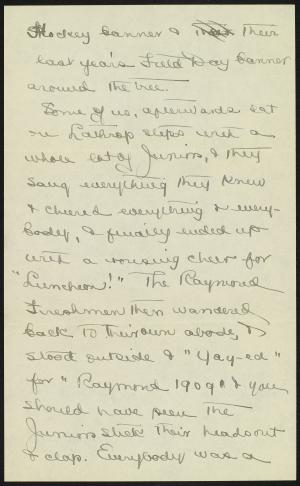 Hockey banner & their
last year's Field Day banner
around the tree.
Some of us, afterwards sat
on Lathrop steps with a
whole lot of Juniors, & they
sang everything they knew
& cheered everything & every-
body, & finally ended up
with a rousing cheer for
"Luncheon!" The Raymond
Freshmen then wandered
back to their own abode, &
stood outside & "Yay-ed"
for "Raymond 1909" & you
should have seen the
Juniors stick their heads out
& clap. Everybody was a